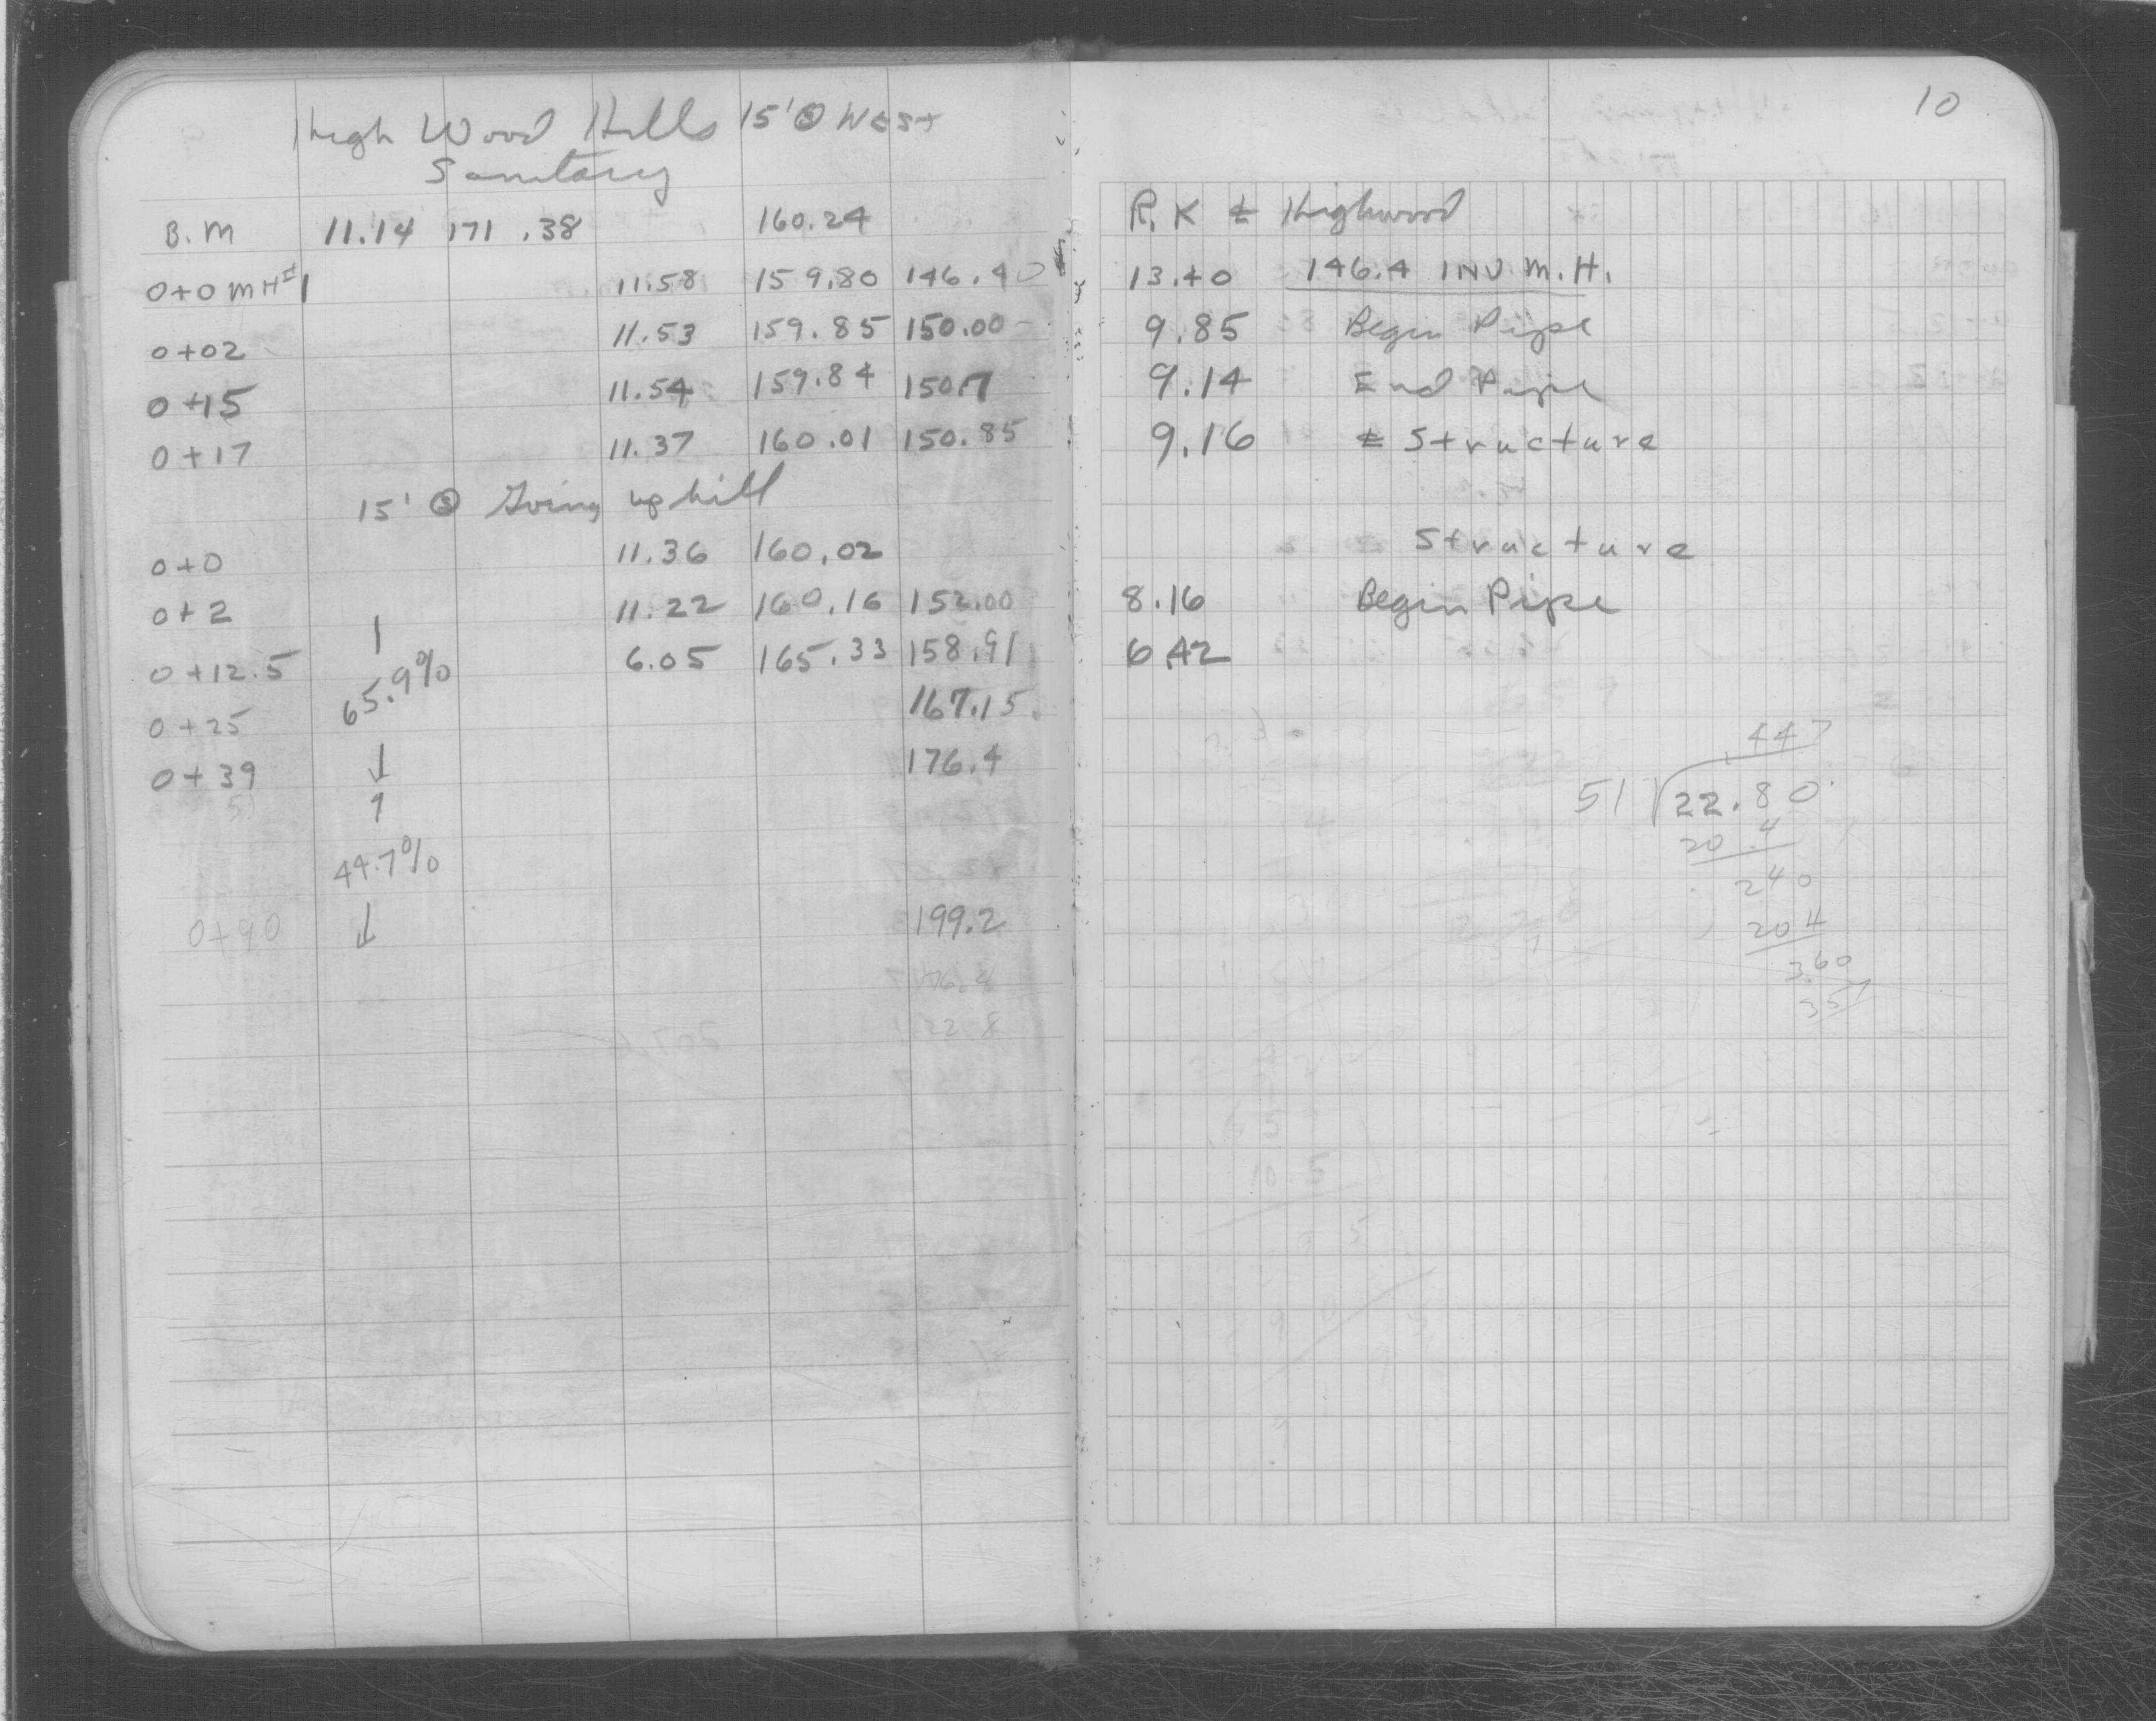 High Wood Hills 15' Ⓢ West
Sanitary
B.M 11.14 171.38 160.24
0+0 MH#1 11.58 159.80 146.40
0+02 11.53 159.85 150.00
0+15 11.54 159.84 150.7
0+17 11.37 160.01 150.85
15' Ⓢ Going up hill
0+0 11.36 160.02
0+2 11.22 160.16 152.00
0+12.5 6.05 165.33 158.91
65.9%
0+25 167.15
0+39 176.4
51
44.7%
0+90 199.2
176.4
22.8
10
R.K ℄ Highwood
13.40 146.4 INV M.H.
9.85 Begin Pipe
9.14 End Pipe
9.16 ℄ Structure
Structure
8.16 Begin Pipe
6.42
.447
51 22.80
20.4
240
204
360
357